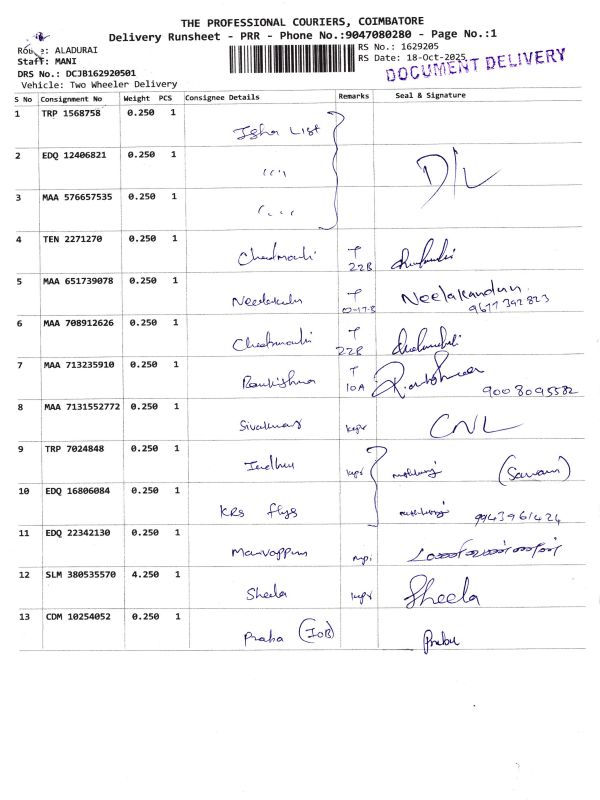 THE PROFESSIONAL COURIERS, COIMBATORE
Delivery Runsheet - PRR - Phone No.:9047080280 - Page No.:1
Route: ALADURAI
RS No.: 1629205
Staff: MANI
RS Date: 18-Oct-2025
DOCUMENT DELIVERY
DRS No.: DCJB162920501
Vehicle: Two Wheeler Delivery
S No Consignment No Weight PCS Consignee Details Remarks Seal & Signature
1 TRP 1568758 0.250 1 Isha List
2 EDQ 12406821 0.250 1 D/L
3 MAA 576657535 0.250 1
4 TEN 2271270 0.250 1 T 22B
5 MAA 651739078 0.250 1 T Neelakandan
9677392823
6 MAA 708912626 0.250 1 T 22B
7 MAA 713235910 0.250 1 T 10A
9008095582
8 MAA 7131552772 0.250 1 Sivakumar CNL
9 TRP 7024848 0.250 1 Indhu
10 EDQ 16806084 0.250 1 KRS flys
9943961424
11 EDQ 22342130 0.250 1
12 SLM 380535570 4.250 1 Sheela Sheela
13 CDM 10254052 0.250 1 Praba (IOB) Prabu